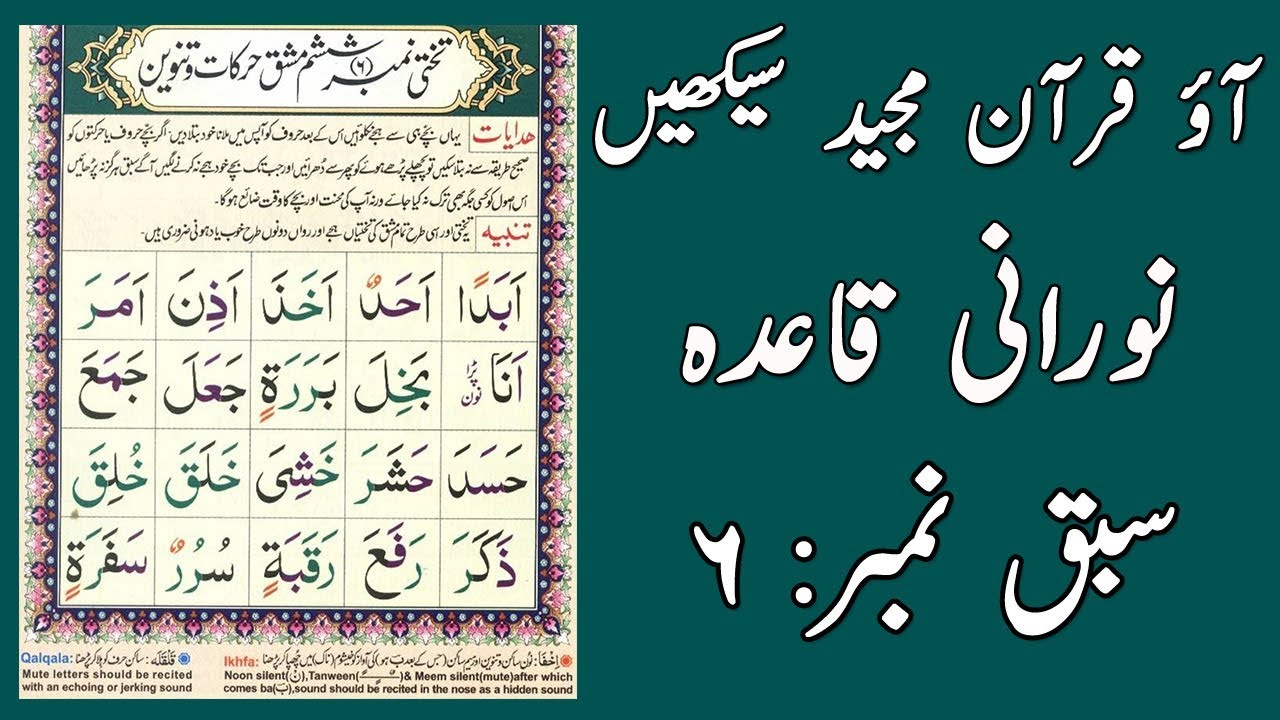 آؤ قرآن مجید سیکھیں
نورانی قاعدہ
سبق نمبر: ۶
تختی نمبر (۶) ششم مشق حرکات و تنوین
ھدایات یہاں بچے ہی سے ہجے نکلوائیں اس کے بعد حروف کو آپس میں ملانا خود بتلا دیں۔ اگر بچے حروف یا حرکتوں کو
صحیح طریقہ سے نہ بتلا سکیں تو پچھلے پڑھے ہوئے کو پھر سے دُھرائیں اور جب تک بچے خود ہجے نہ کرنے لگیں آگے سبق ہرگز نہ پڑھائیں
اس اصول کو کسی جگہ بھی ترک نہ کیا جائے ورنہ آپ کی محنت اور بچے کا وقت ضائع ہوگا۔
تنبیہ یہ تختی اور اسی طرح تمام مشق کی تختیاں ہجے اور رواں دونوں طرح خوب یاد ہونی ضروری ہیں۔
اَبَدًا اَحَدٌ اَخَذَ اَذِنَ اَمَرَ
اَنَا بَخِلَ بَرَرَةٍ جَعَلَ جَمَعَ
حَسَدَ حَشَرَ خَشِىَ خَلَقَ خُلِقَ
ذَكَرَ رَفَعَ رَقَبَةٍ سُرُرٌ سَفَرَةٍ
اِخفَا: نون ساکن و تنوین اور میم ساکن (جس کے بعد ب ہو) کی آواز کو خیشوم (ناک) میں چھپا کر پڑھنا
Ikhfa:
Noon silent(نْ),Tanween(ـًـٍـٌ)& Meem silent(mute)after which
comes ba(بَ),sound should be recited in the nose as a hidden sound
قَلْقَلَه: ساکن حرف کو ہلا کر پڑھنا
Qalqala:
Mute letters should be recited
with an echoing or jerking sound